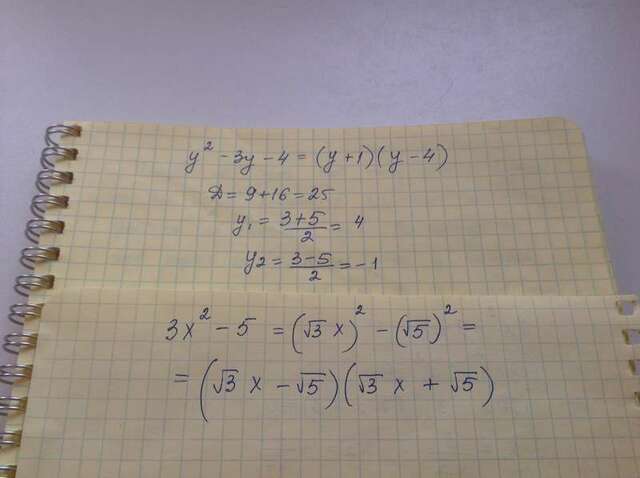 y² - 3y - 4 = (y + 1)(y - 4)
D = 9 + 16 = 25
y₁ = (3+5)/2 = 4
y₂ = (3-5)/2 = -1
3x² - 5 = (√3 x)² - (√5)² =
= (√3 x - √5)(√3 x + √5)